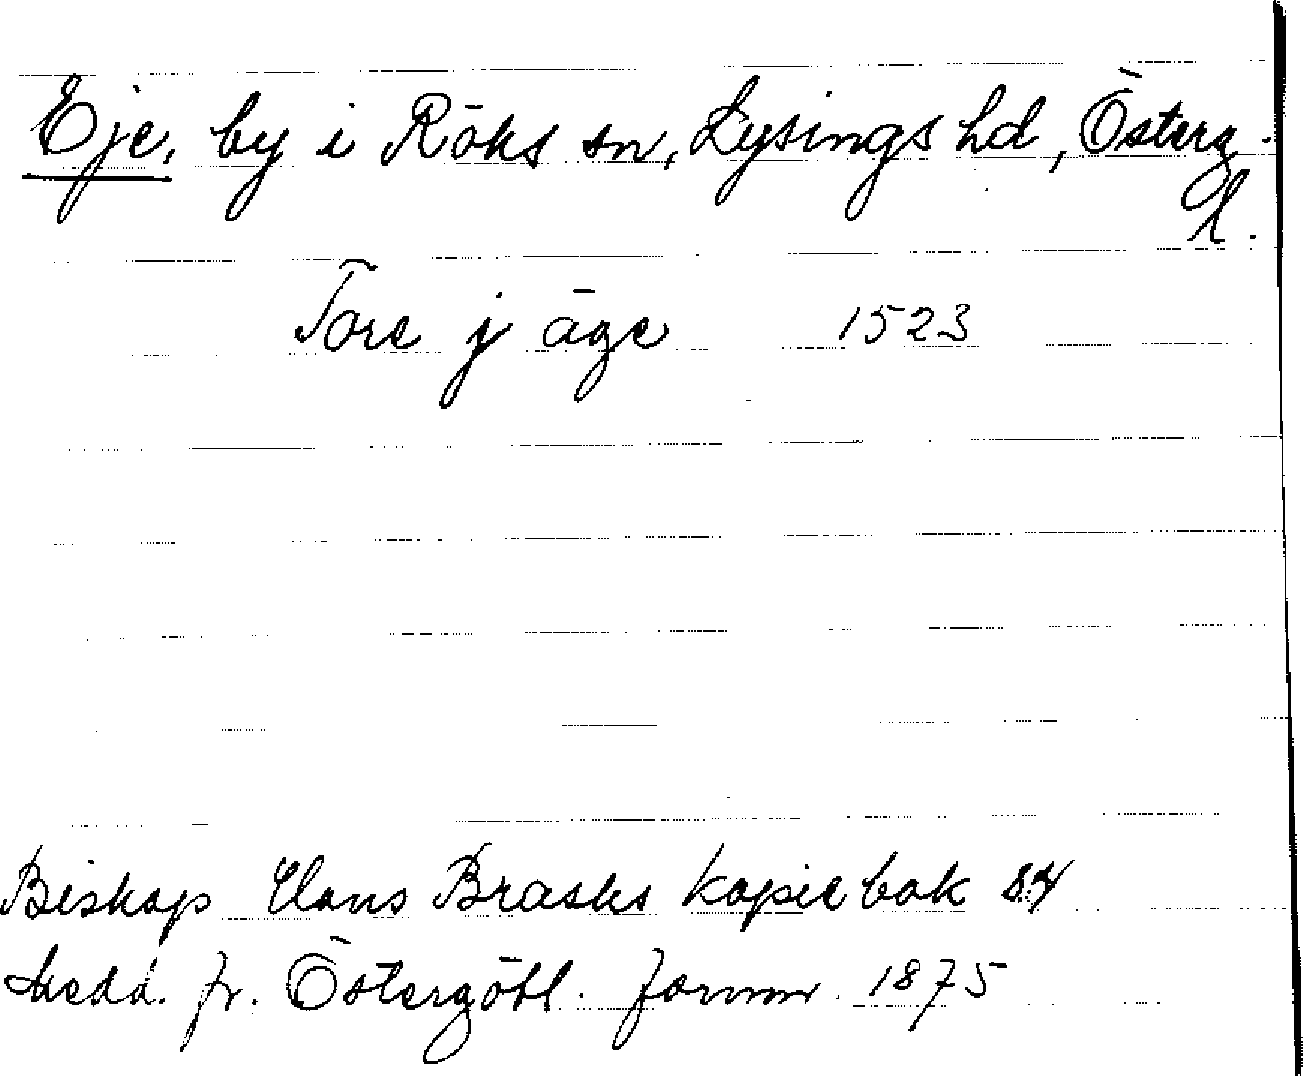 Eje, by i Röks sn, Lysings hd, Österg.
l.
Tore j äge 1523
Biskop Hans Brasks kopiebok
Medd. fr. Östergötl. fornm. 1875